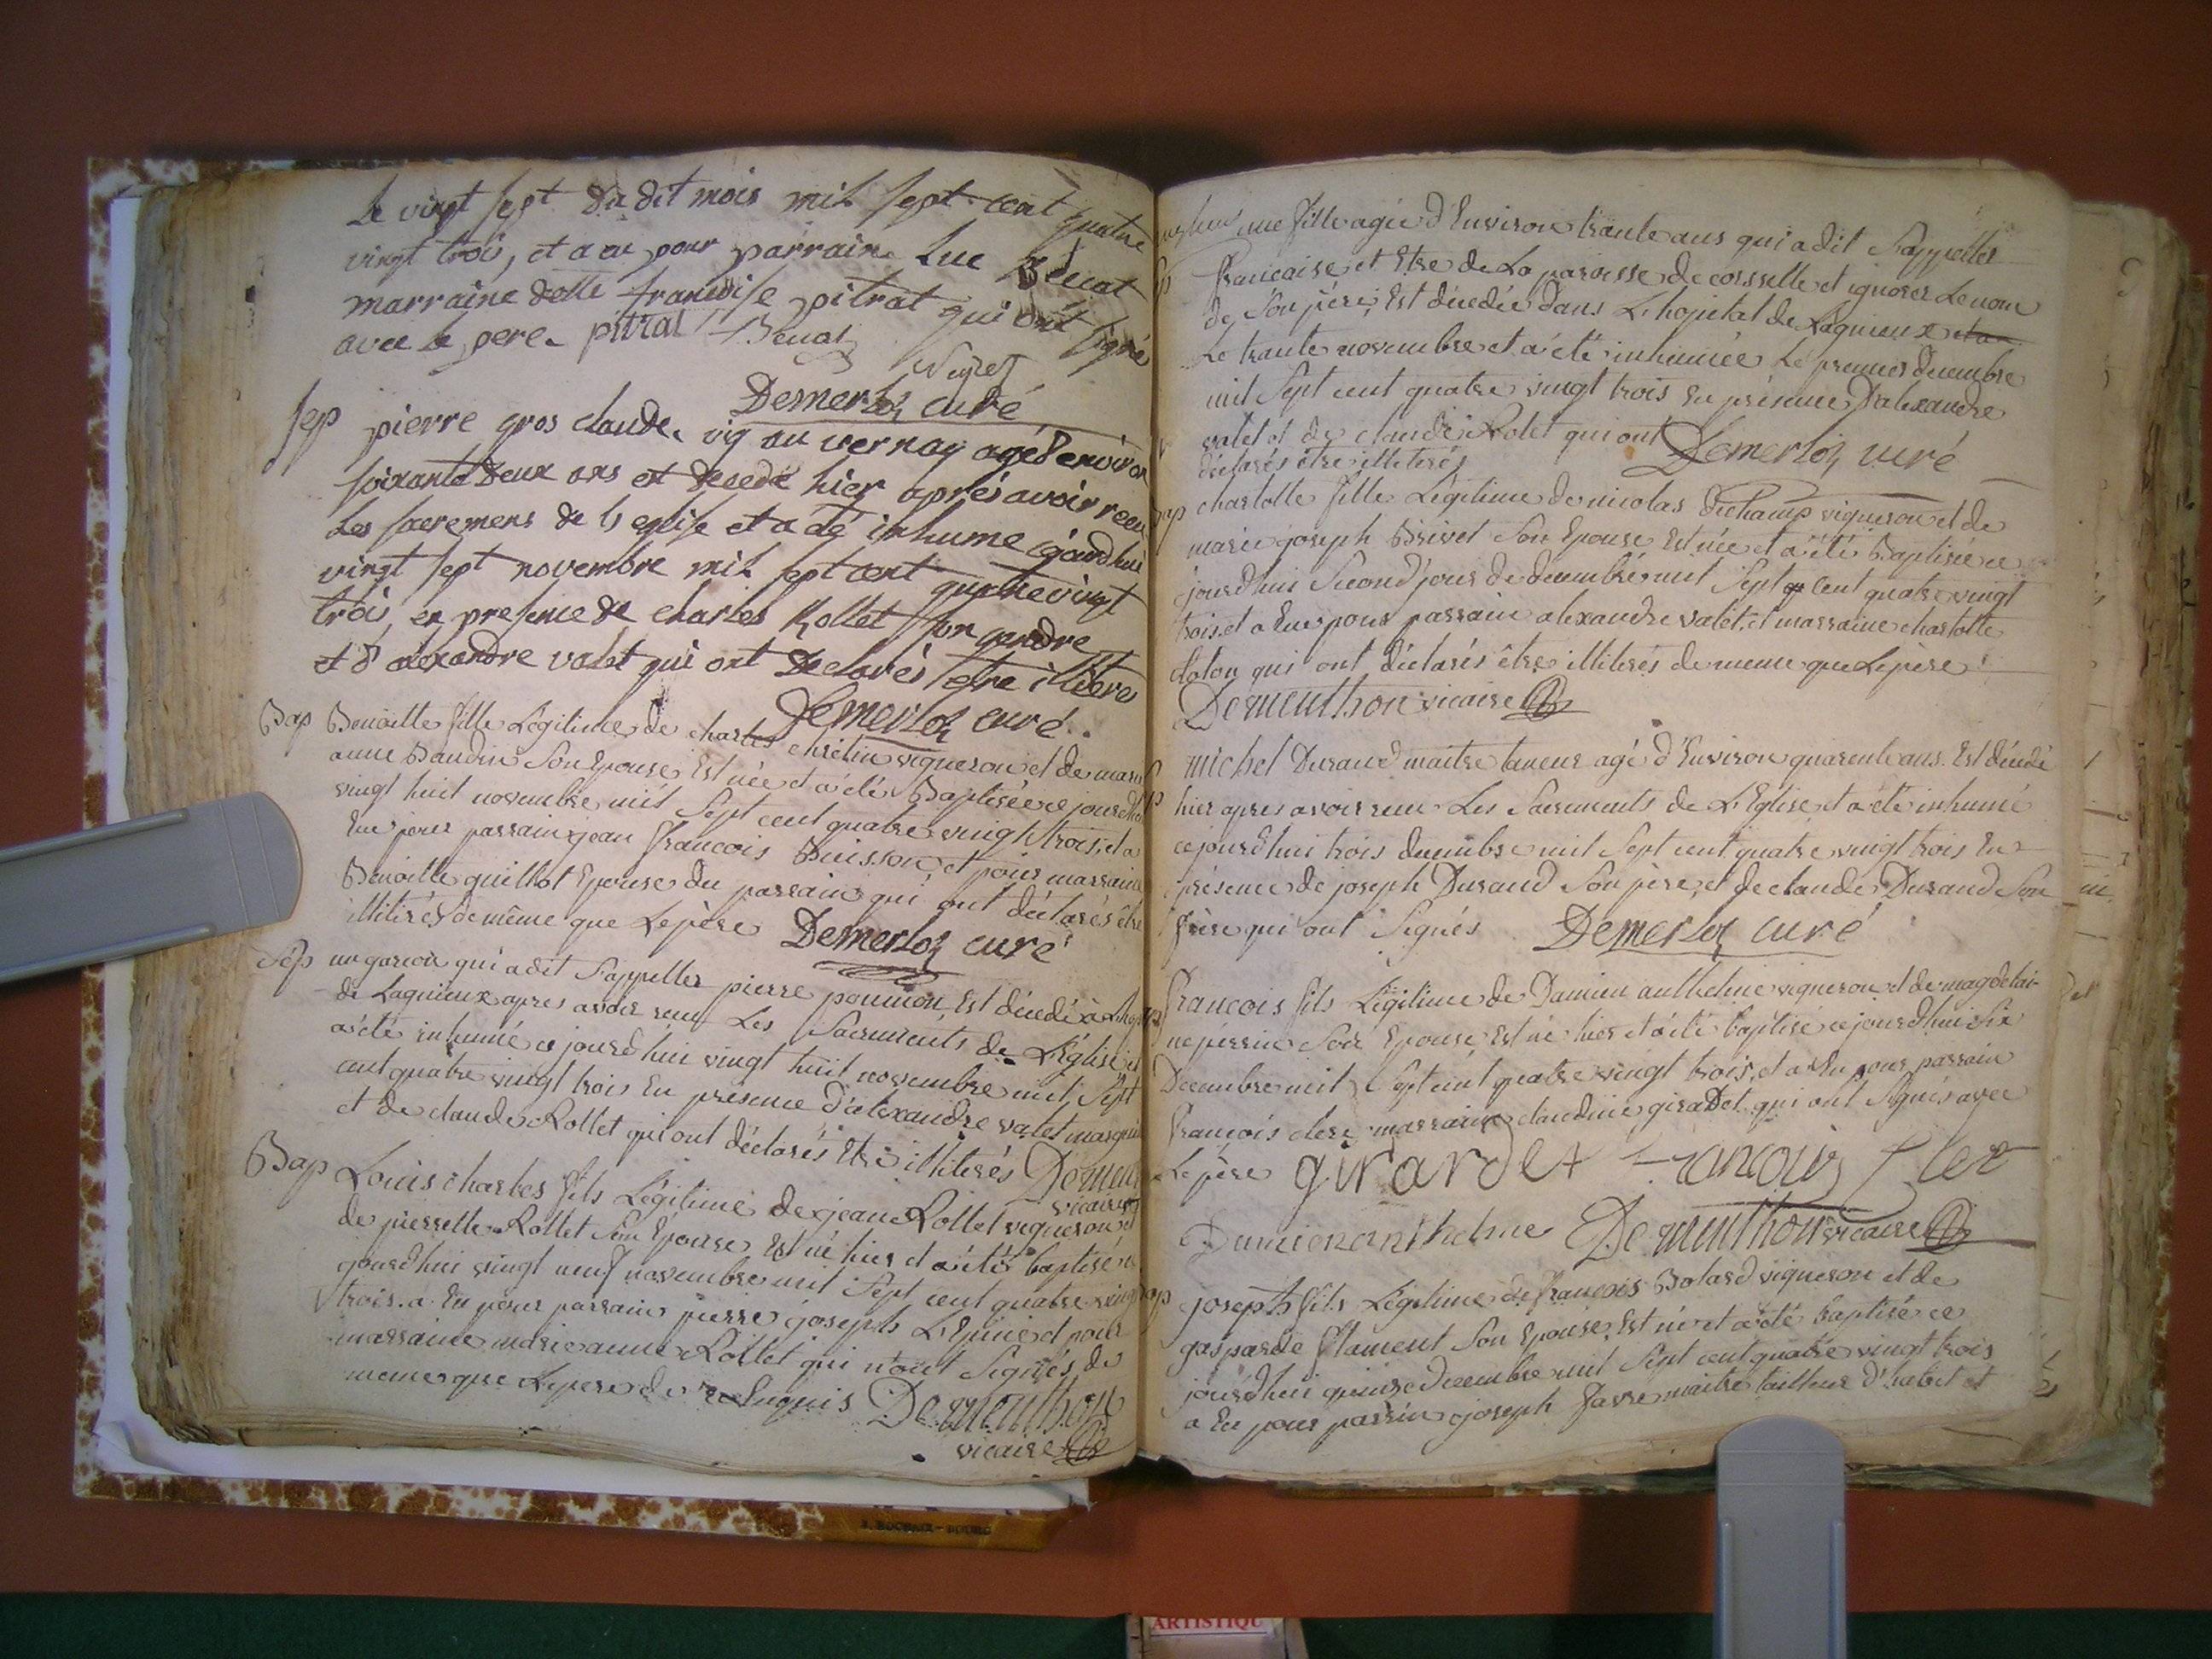 Le vingt sept du dit mois mil sept cent quatre
vingt trois, et a eu pour parrain Luc Bénat
marraine delle françoise pitrat qui ont signé
avec le pere. pitrat Bénat
Demerloz curé
sep pierre gros claude, vig au vernay agé d'environ
soixante deux ans est decedé hier après avoir reçu
Les sacremens de l'eglise et a été inhumé ce jourd'hui
vingt sept novembre mil sept cent quatre vingt
trois, en presence de charles Rollet son gendre
et d'alexandre valet qui ont declarés etre illiteres
Demerloz curé.
Bap Benoitte fille Légitime de charles chrétin vigneron et de marie
anne Baudin Son Epouse, Est née et a été Baptisée ce jourd'hui
vingt huit novembre mil Sept cent quatre vingt trois, et a
Eu pour parrain jean francois Buisson, et pour marraine
Benoitte guillot Epouse du parrain qui ont déclarés être
illitirés de même que Le père Demerloz curé
Sep un garcon qui a dit S'appeller pierre poumon, Est décedé à L'hop
de Lagnieux apres avoir reçu Les Sacrements de L'Église, et
a été inhumé ce jourd'hui vingt huit novembre mil Sept
cent quatre vingt trois En présence d'alexandre valet
et de claude Rollet qui ont déclarés Etre illiterés
vicaire
Bap Louis charles fils Légitime de jean Rollet vigneron et
de pierrette Rollet Son Epouse, Est né hier et a été baptisé ce
jourd'hui vingt neuf novembre mil Sept cent quatre vingt
trois. a Eu pour parrain pierre joseph L'Epine et pour
marraine marie anne Rollet qui n'ont Signés de
meme que Le pere de ce Enquis Dementhon
vicaire
une fille agée d'Environ trante ans qui a dit S'appeller
francaise et Etre de La paroisse de corsselle et ignorer Le nom
de Son père, Est décedée dans L'hopital de Lagnieux
Le trante novembre et a été inhumée Le premier decembre
mil Sept cent quatre vingt trois En présence D'alexandre
valet et de claude Rolet qui ont Demerloz curé
déclarés être illiterés
Bap charlotte fille Légitime de nicolas dichamp vigneron et de
marie joseph Brivet Son Epouse Est née et a été Baptisée ce
jourd'hui Second jour de decembre mil Sept cent quatre vingt
trois, et a Eu pour parrain alexandre valet, et marraine charlotte
qui ont déclarés être illitirés de meme que Le père
Dementhon vicaire
michel Durand maitre taneur agé d'Environ quarente ans. Est décedé
hier apres avoir reçu Les Sacrements de L'Eglise, et a été inhumé
ce jourd'hui trois decembre mil Sept cent quatre vingt trois En
présence de joseph Durand Son père, et de claude Durand Son
frère qui ont Signés Demerloz curé
francois fils Légitime de Damien anthelme vigneron et de magdelai-
ne perrin Son Epouse Est né hier et a été baptisé ce jourd'hui Six
Decembre mil Sept cent quatre vingt trois, et a Eu pour parrain
françois clerc, marraine claudine giradet, qui ont Signés avec
Le père girardet francois cler
Damien anthelme Dementhon vicaire
joseph fils Légitime de françois Bolard vigneron et de
gasparde flament Son Epouse, Est né et a été baptisé ce
jourd'hui quinze Decembre mil Sept cent quatre vingt trois
a Eu pour parrin joseph favre maitre tailleur d'habit et
ARTISTIQU